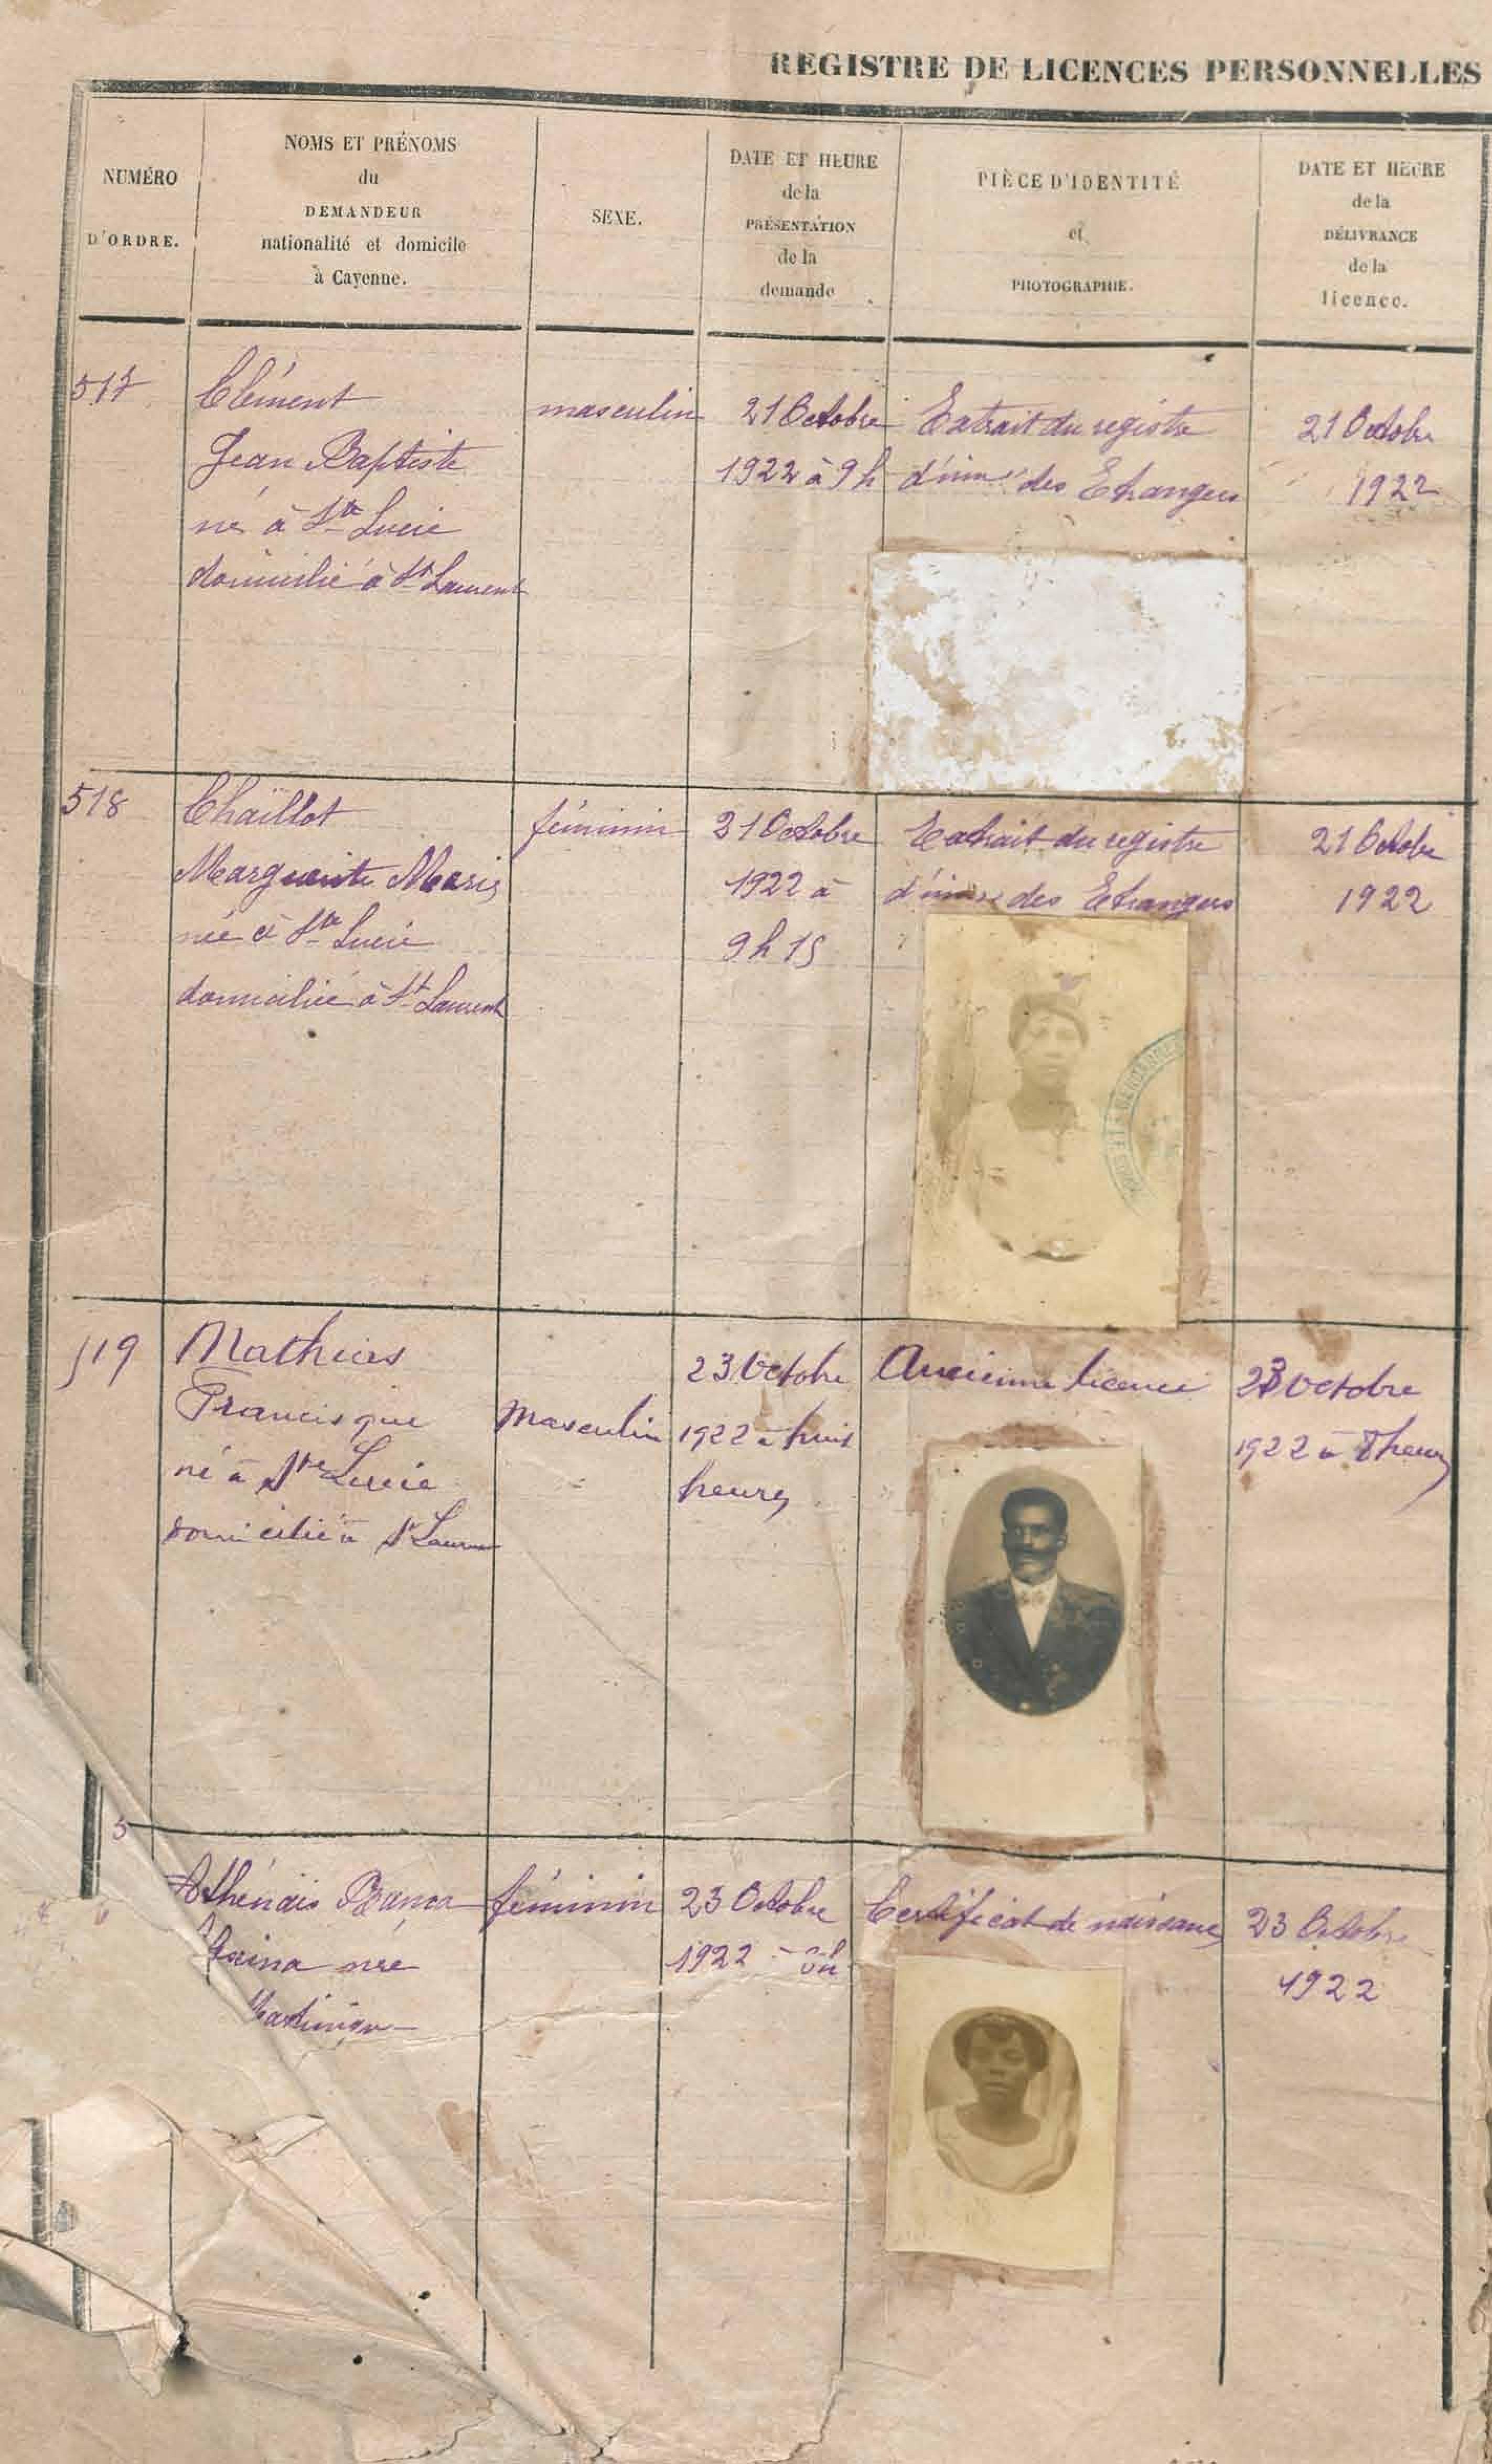 REGISTRE DE LICENCES PERSONNELLES
NUMÉRO
D'ORDRE.
NOMS ET PRÉNOMS
du
DEMANDEUR
nationalité et domicile
à Cayenne.
SEXE.
DATE ET HEURE
de la
PRÉSENTATION
de la
demande
PIÈCE D'IDENTITÉ
et
PHOTOGRAPHIE.
DATE ET HEURE
de la
DÉLIVRANCE
de la
licence.
517
Clément
Jean Baptiste
né à Ste Lucie
domicilié à St Laurent
masculin
21 Octobre
1922 à 9 h
Extrait du registre
d'imm des Etrangers
21 Octobre
1922
518
Chaillot
Marguerite Marie
née à Ste Lucie
domiciliée à St Laurent
féminin
21 Octobre
1922 à
9 h 15
Extrait du registre
des Etrangers
21 Octobre
1922
519
Mathieus
Francisque
né à Ste Lucie
domicilié à St Laurent
Masculin
23 Octobre
1922 à huit
heures
Ancienne licence
23 Octobre
1922 à 8 heures
5
Athénais
née
féminin
23 Octobre
1922
Certificat de naissance
23 Octobre
1922